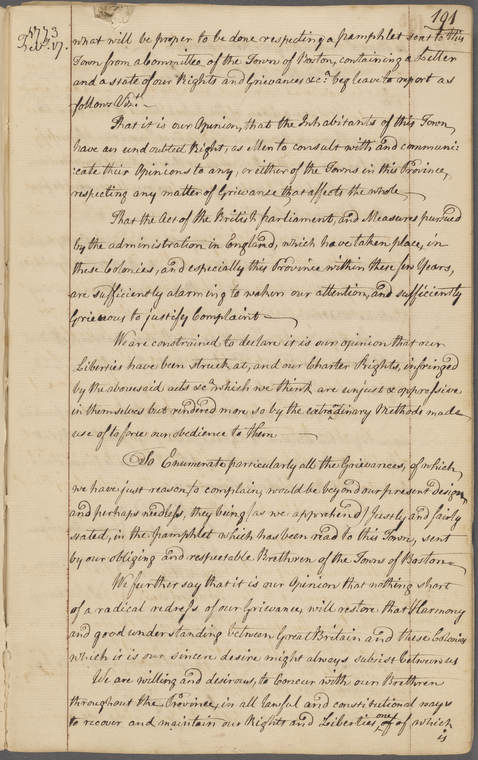 191
1773
Feb. 17.
what will be proper to be done respecting a pamphlet sent to this
Town from a Committee of the Town of Boston, containing a Letter
and a state of our Rights and Grievances &c.a beg leave to report as
follows Vizt.—
That it is our Opinion, that the Inhabitants of this Town,
have an undoubted Right, as Men to consult with and communi
:cate their Opinions to any, or either of the Towns in this Province,
respecting any matter of Grievance that affects the whole—
That the Act of the British parliament, and Measures pursued
by the administration in England, which have taken place, in
these Colonies, and especially this Province within these few Years,
are sufficiently alarming to waken our attention, and sufficiently
Grievous to justify Complaint—
We are constrained to declare it is our opinion that our
Liberties have been struck at, and our Charter Rights, infringed
by the abovesaid acts &c.a which we think are unjust & oppressive
in themselves but rendered more so by the extraordinary Methods made
use of to force our obedience to them—
To Enumerate particularly all the Grievances, of which,
we have just reason to complain, would be beyond our present design,
and perhaps needless, they being (as we apprehend) Justly and fairly
stated, in the pamphlet which has been read to this Town, sent
by our obliging and respectable Brethren of the Town of Boston—
We further say that it is our Opinion that nothing short
of a radical redress of our Grievances will restore that Harmony
and good understanding between Great Britain and these Colonies
which it is our sincere desire might always subsist between us
We are willing and desirous, to Concur with our Brethren
throughout the Province, in all lawful and constitutional ways
to recover and maintain our Rights and Liberties, one of of which
is